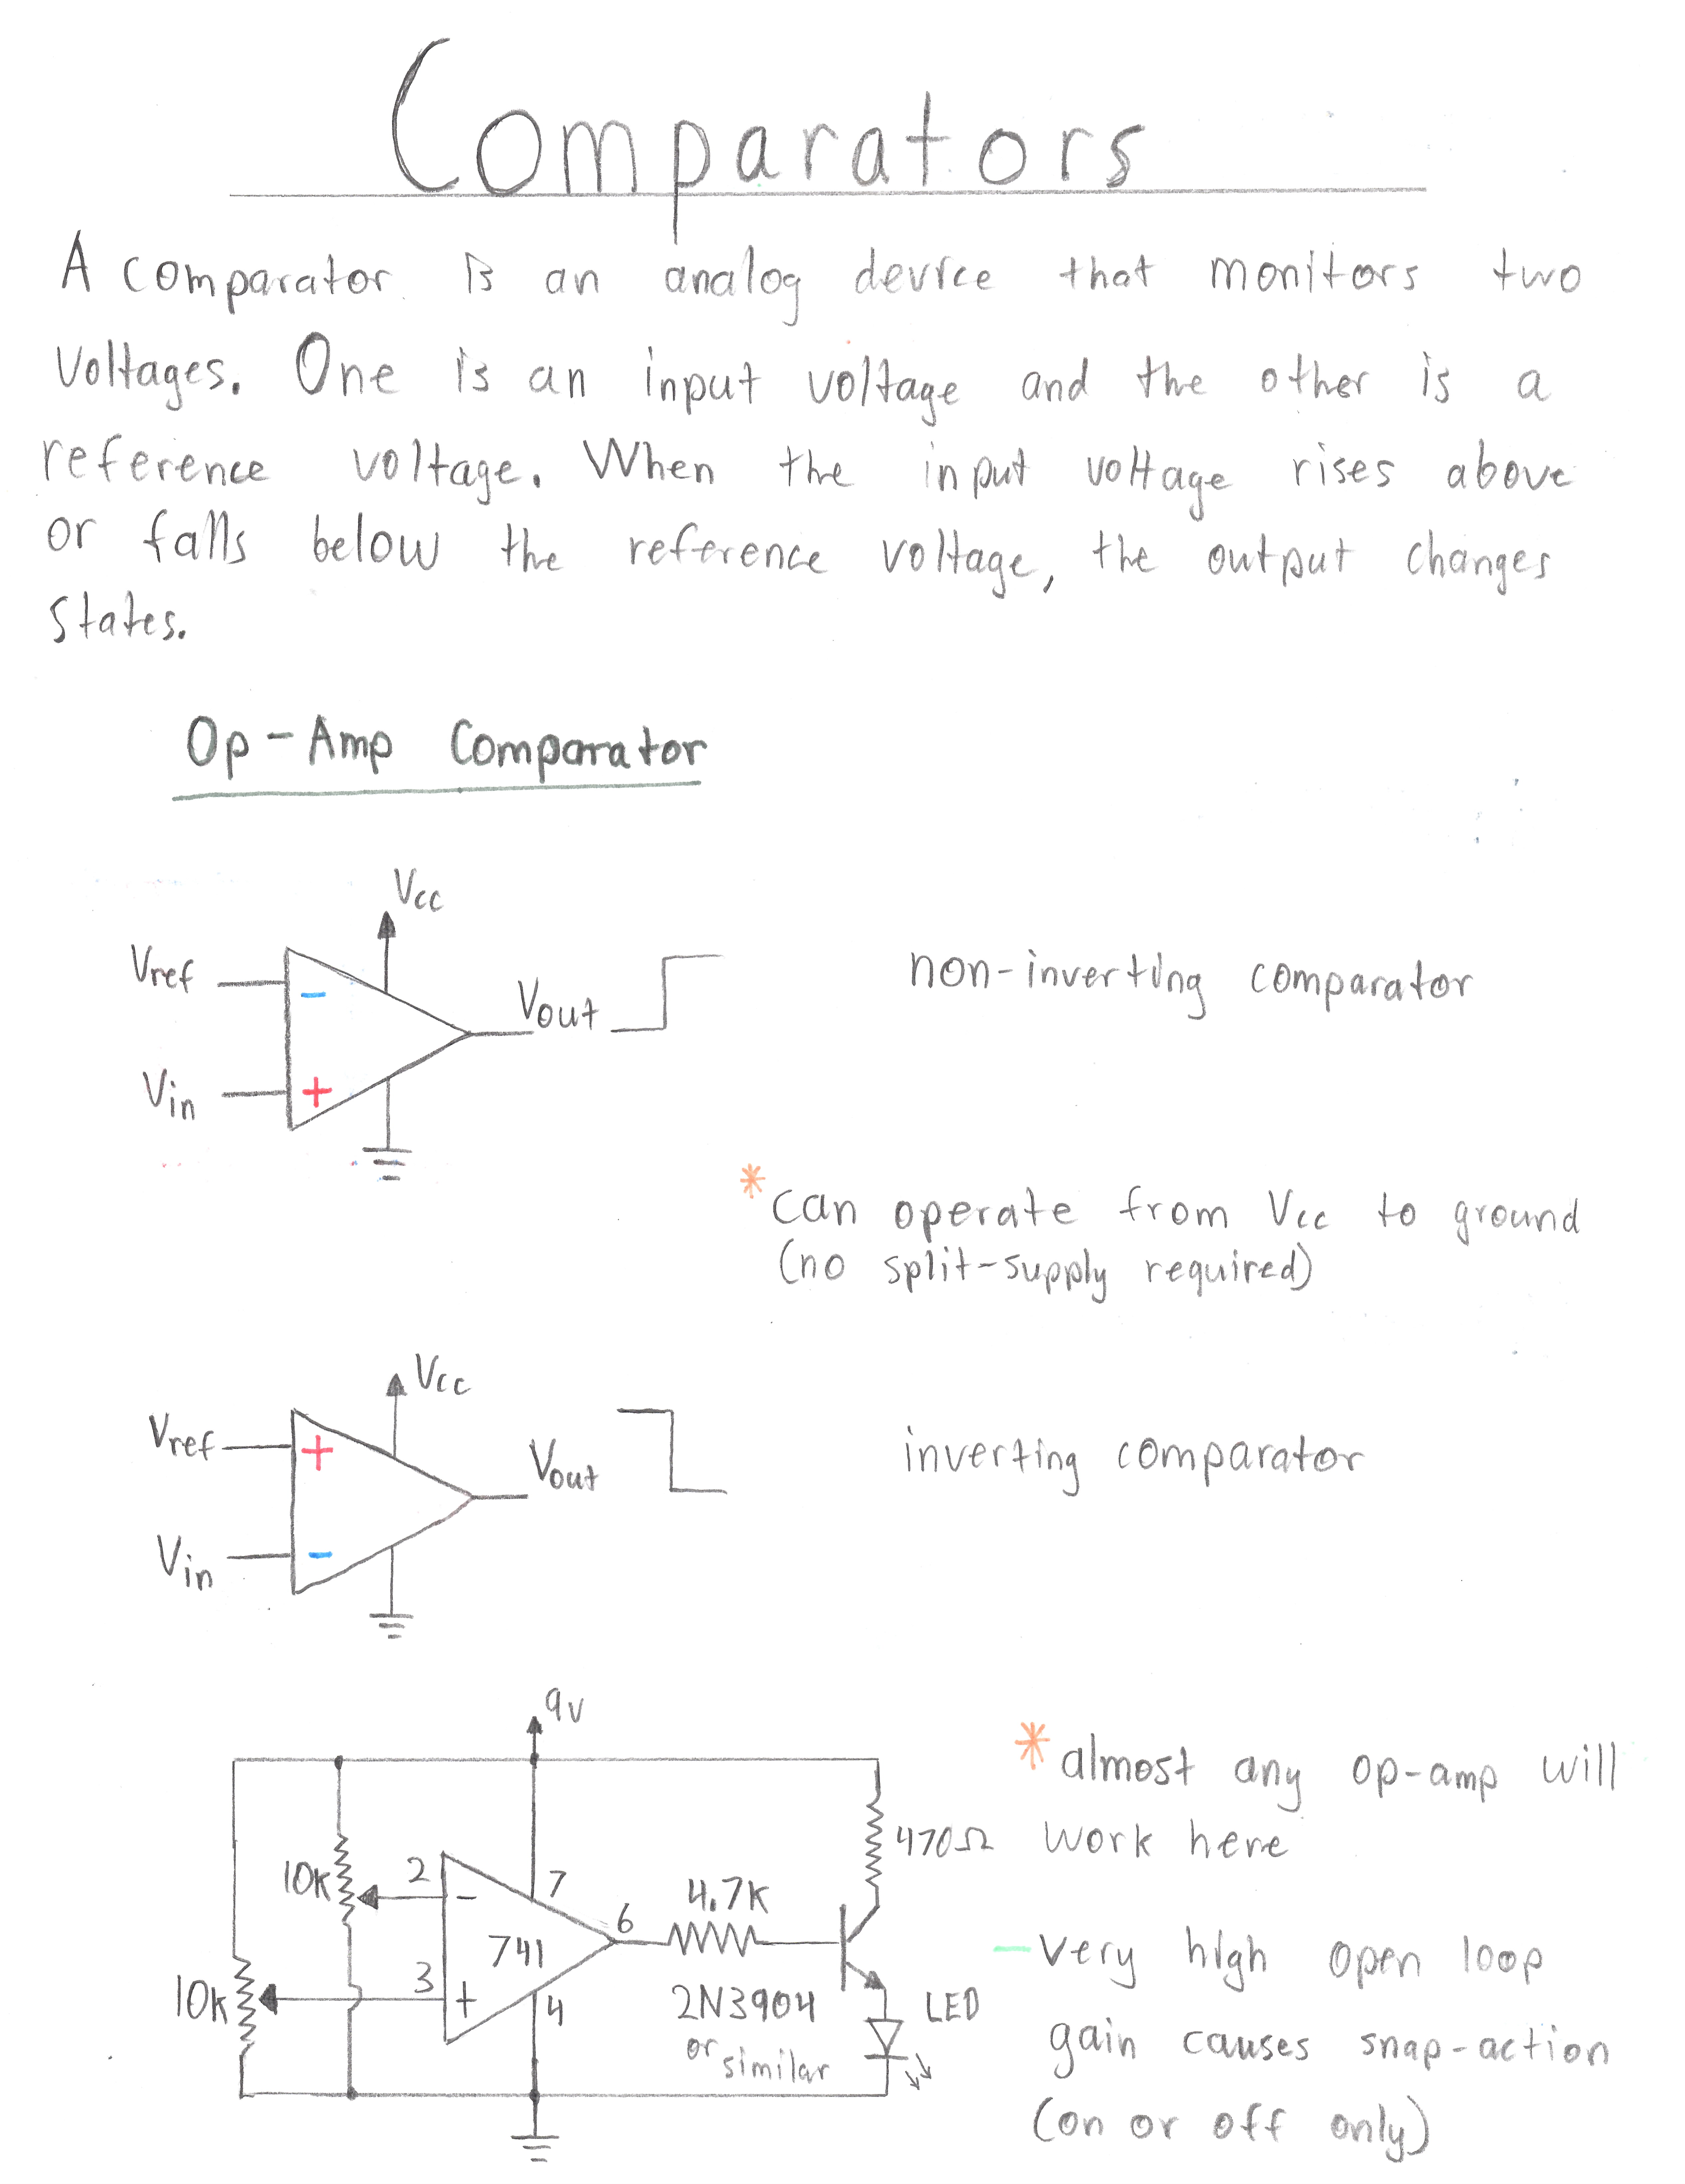 Comparators
A comparator is an analog device that monitors two
voltages. One is an input voltage and the other is a
reference voltage. When the input voltage rises above
or falls below the reference voltage, the output changes
states.
Op-Amp Comparator
Vcc
Vref
-
Vout
non-inverting comparator
Vin
+
*can operate from Vcc to ground
(no split-supply required)
Vcc
Vref
+
Vout
inverting comparator
Vin
-
9v
*almost any op-amp will
470Ω work here
10k 2 - 7
4.7K
6
741
- very high open loop
10k 3 + 4
2N3904
LED
or similar
gain causes snap-action
(on or off only)